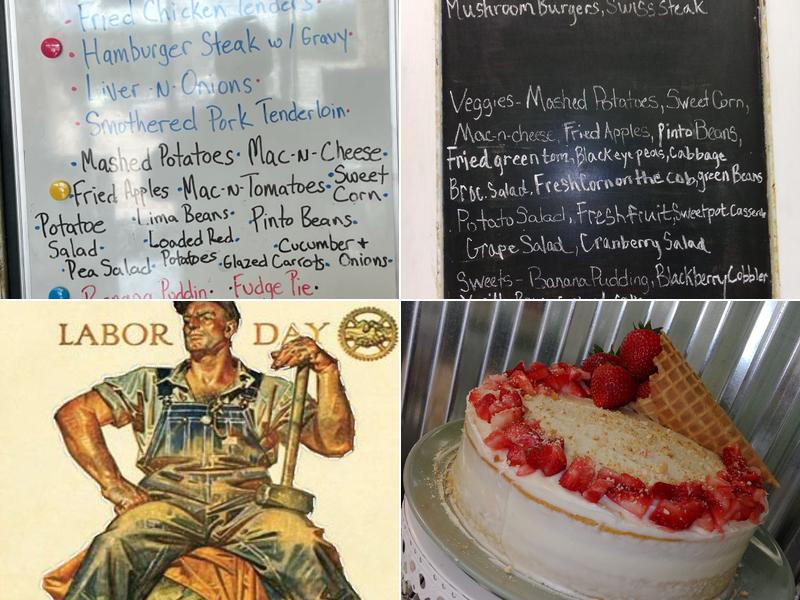 Fried Chicken Tenders
• Hamburger Steak w/ Gravy•
• Liver -N- Onions•
• Smothered Pork Tenderloin•
• Mashed Potatoes• Mac-N-Cheese•
• Fried Apples •Mac-N-Tomatoes• •Sweet Corn•
•Potatoe Salad• •Lima Beans• Pinto Beans•
•Loaded Red• Potatoes •Cucumber + Onions•
•Pea Salad• •Glazed Carrots•
Banana Puddin• •Fudge Pie•
Mushroom Burgers, Swiss Steak
Veggies- Mashed Potatoes, Sweet Corn,
Mac-n-cheese, Fried Apples, Pinto Beans,
Fried green tom, Blackeye peas, Cabbage
Broc. Salad, Fresh Corn on the cob, green Beans
Potato Salad, Fresh fruit, Sweet pot. Casserole
Grape Salad, Cranberry Salad
Sweets- Banana Pudding, Blackberry Cobbler
LABOR DAY